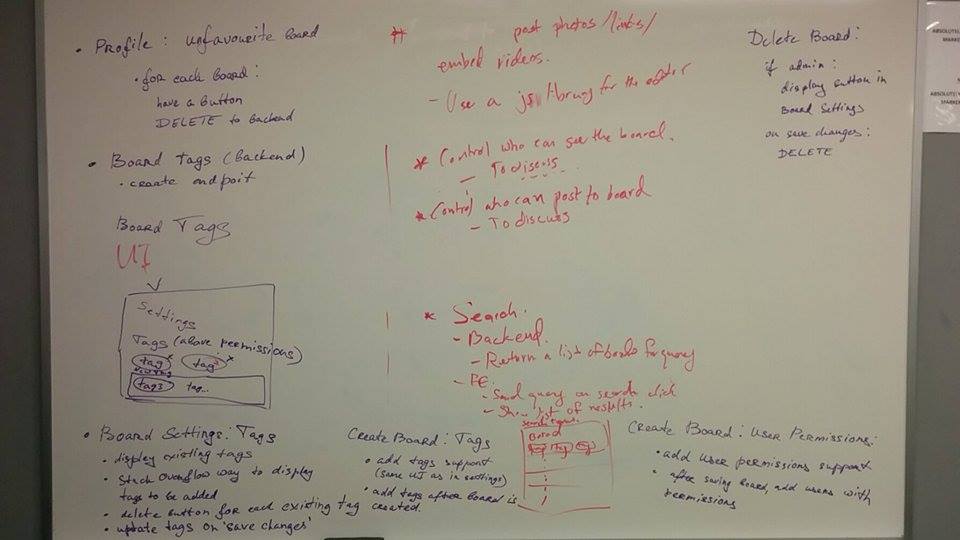 • Profile: unfavourite board
• for each board:
have a button
DELETE to backend
• Board tags (backend)
• create endpoit
Board Tags
UI
Settings
Tags (above permissions)
tag x tag 2 x
new tag
tag3 tag...
• Board Settings: Tags
• display existing tags
• Stack overflow way to display
tags to be added
• delete button for each existing tag
• update tags on 'save changes'
post photos/links/
embed videos.
- Use a js library for the editor
* Control who can see the board.
- To discuss
* Control who can post to board
- To discuss
* Search.
- Backend.
- Return a list of boards for query
- FE.
- Send query on search click
- Show list of results.
Create Board: Tags
• add tags support
(same UI as in settings)
• add tags after board is
created.
Board
Delete Board:
if admin:
display button in
Board Settings
on save changes:
DELETE
Create Board: User Permissions:
• add user permissions support
• after saving board, add users with
permissions
ABSOLUTELY
MARKER